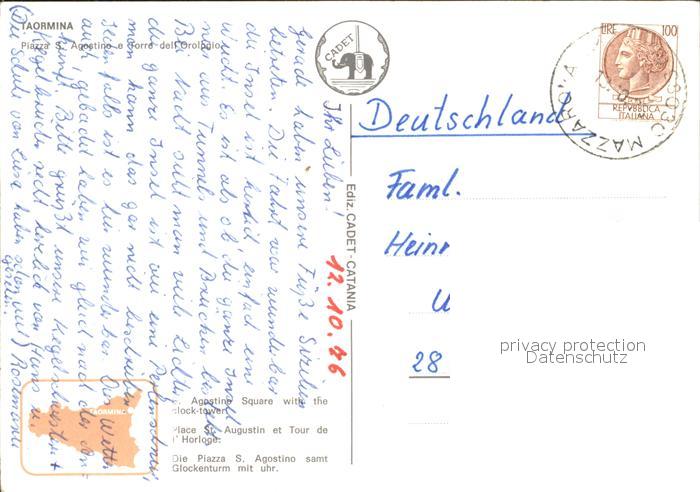 TAORMINA
Piazza S. Agostino e Torre dell'Orologio
CADET
LIRE 100
REPVBBLICA
ITALIANA
MAZZARO
Ediz. CADET - CATANIA
12.10.76
Deutschland
Faml.
Heinr
u
28
privacy protection
Datenschutz
Ihr Lieben!
Gerade haben unsere Füße Sizilien
betreten. Die Fahrt war wunderbar
die Insel ist herrlich, einfach eine
Wucht. Es ist als ob die ganze Insel
nur aus Tunnels und Brücken besteht
Bei Nacht sieht man viele Lichter
die ganze Insel ist wie eine Perlenschnur,
man kann das gar nicht beschreiben
Jedenfalls ist es hier wunderbar. Das Wetter
auch gebadet haben wir gleich nach der An-
kunft. Bitte grüßt unsere Kegelschwestern +
Kegelbrüder recht herzlich von Hans u.
Die Schule von Luise haben schon viel Rosmarie
TAORMINA
S. Agostino Square with the
clock-tower.
Place St. Augustin et Tour de
l' Horloge.
Die Piazza S. Agostino samt
Glockenturm mit uhr.